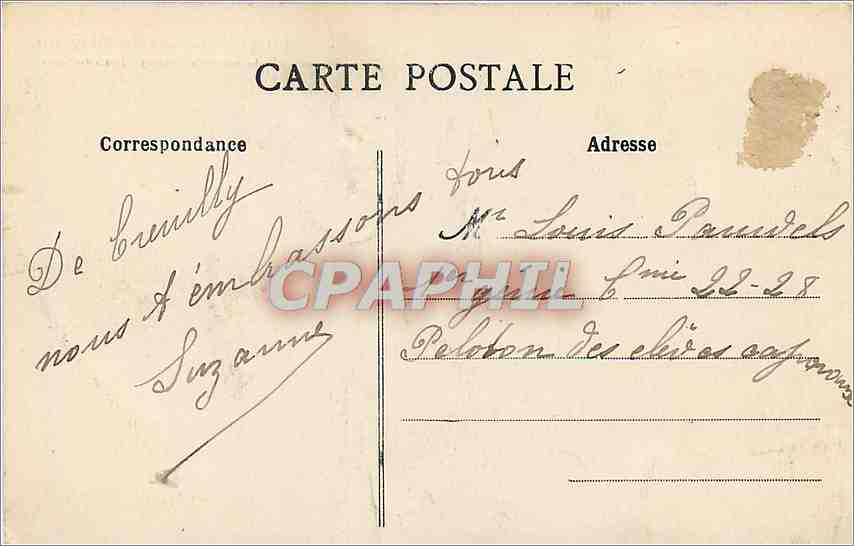 CARTE POSTALE
Correspondance
Adresse
De Creuilly
nous t'embrassons tous
Suzanne
Mr Louis Pauwels
1er génie Cnie 22-28
Peloton des elèves caporaux
CPAPHIL